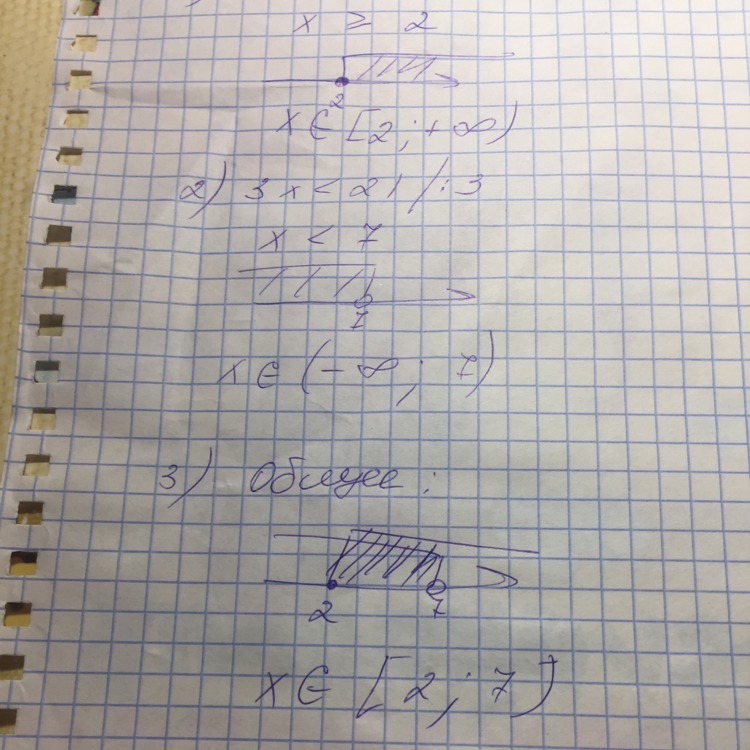 x ≥ 2
2
x ∈ [2 ; + ∞)
2) 3x < 21 /:3
x < 7
7
x ∈ (- ∞ ; 7)
3) Общее :
2 7
x ∈ [2 ; 7)